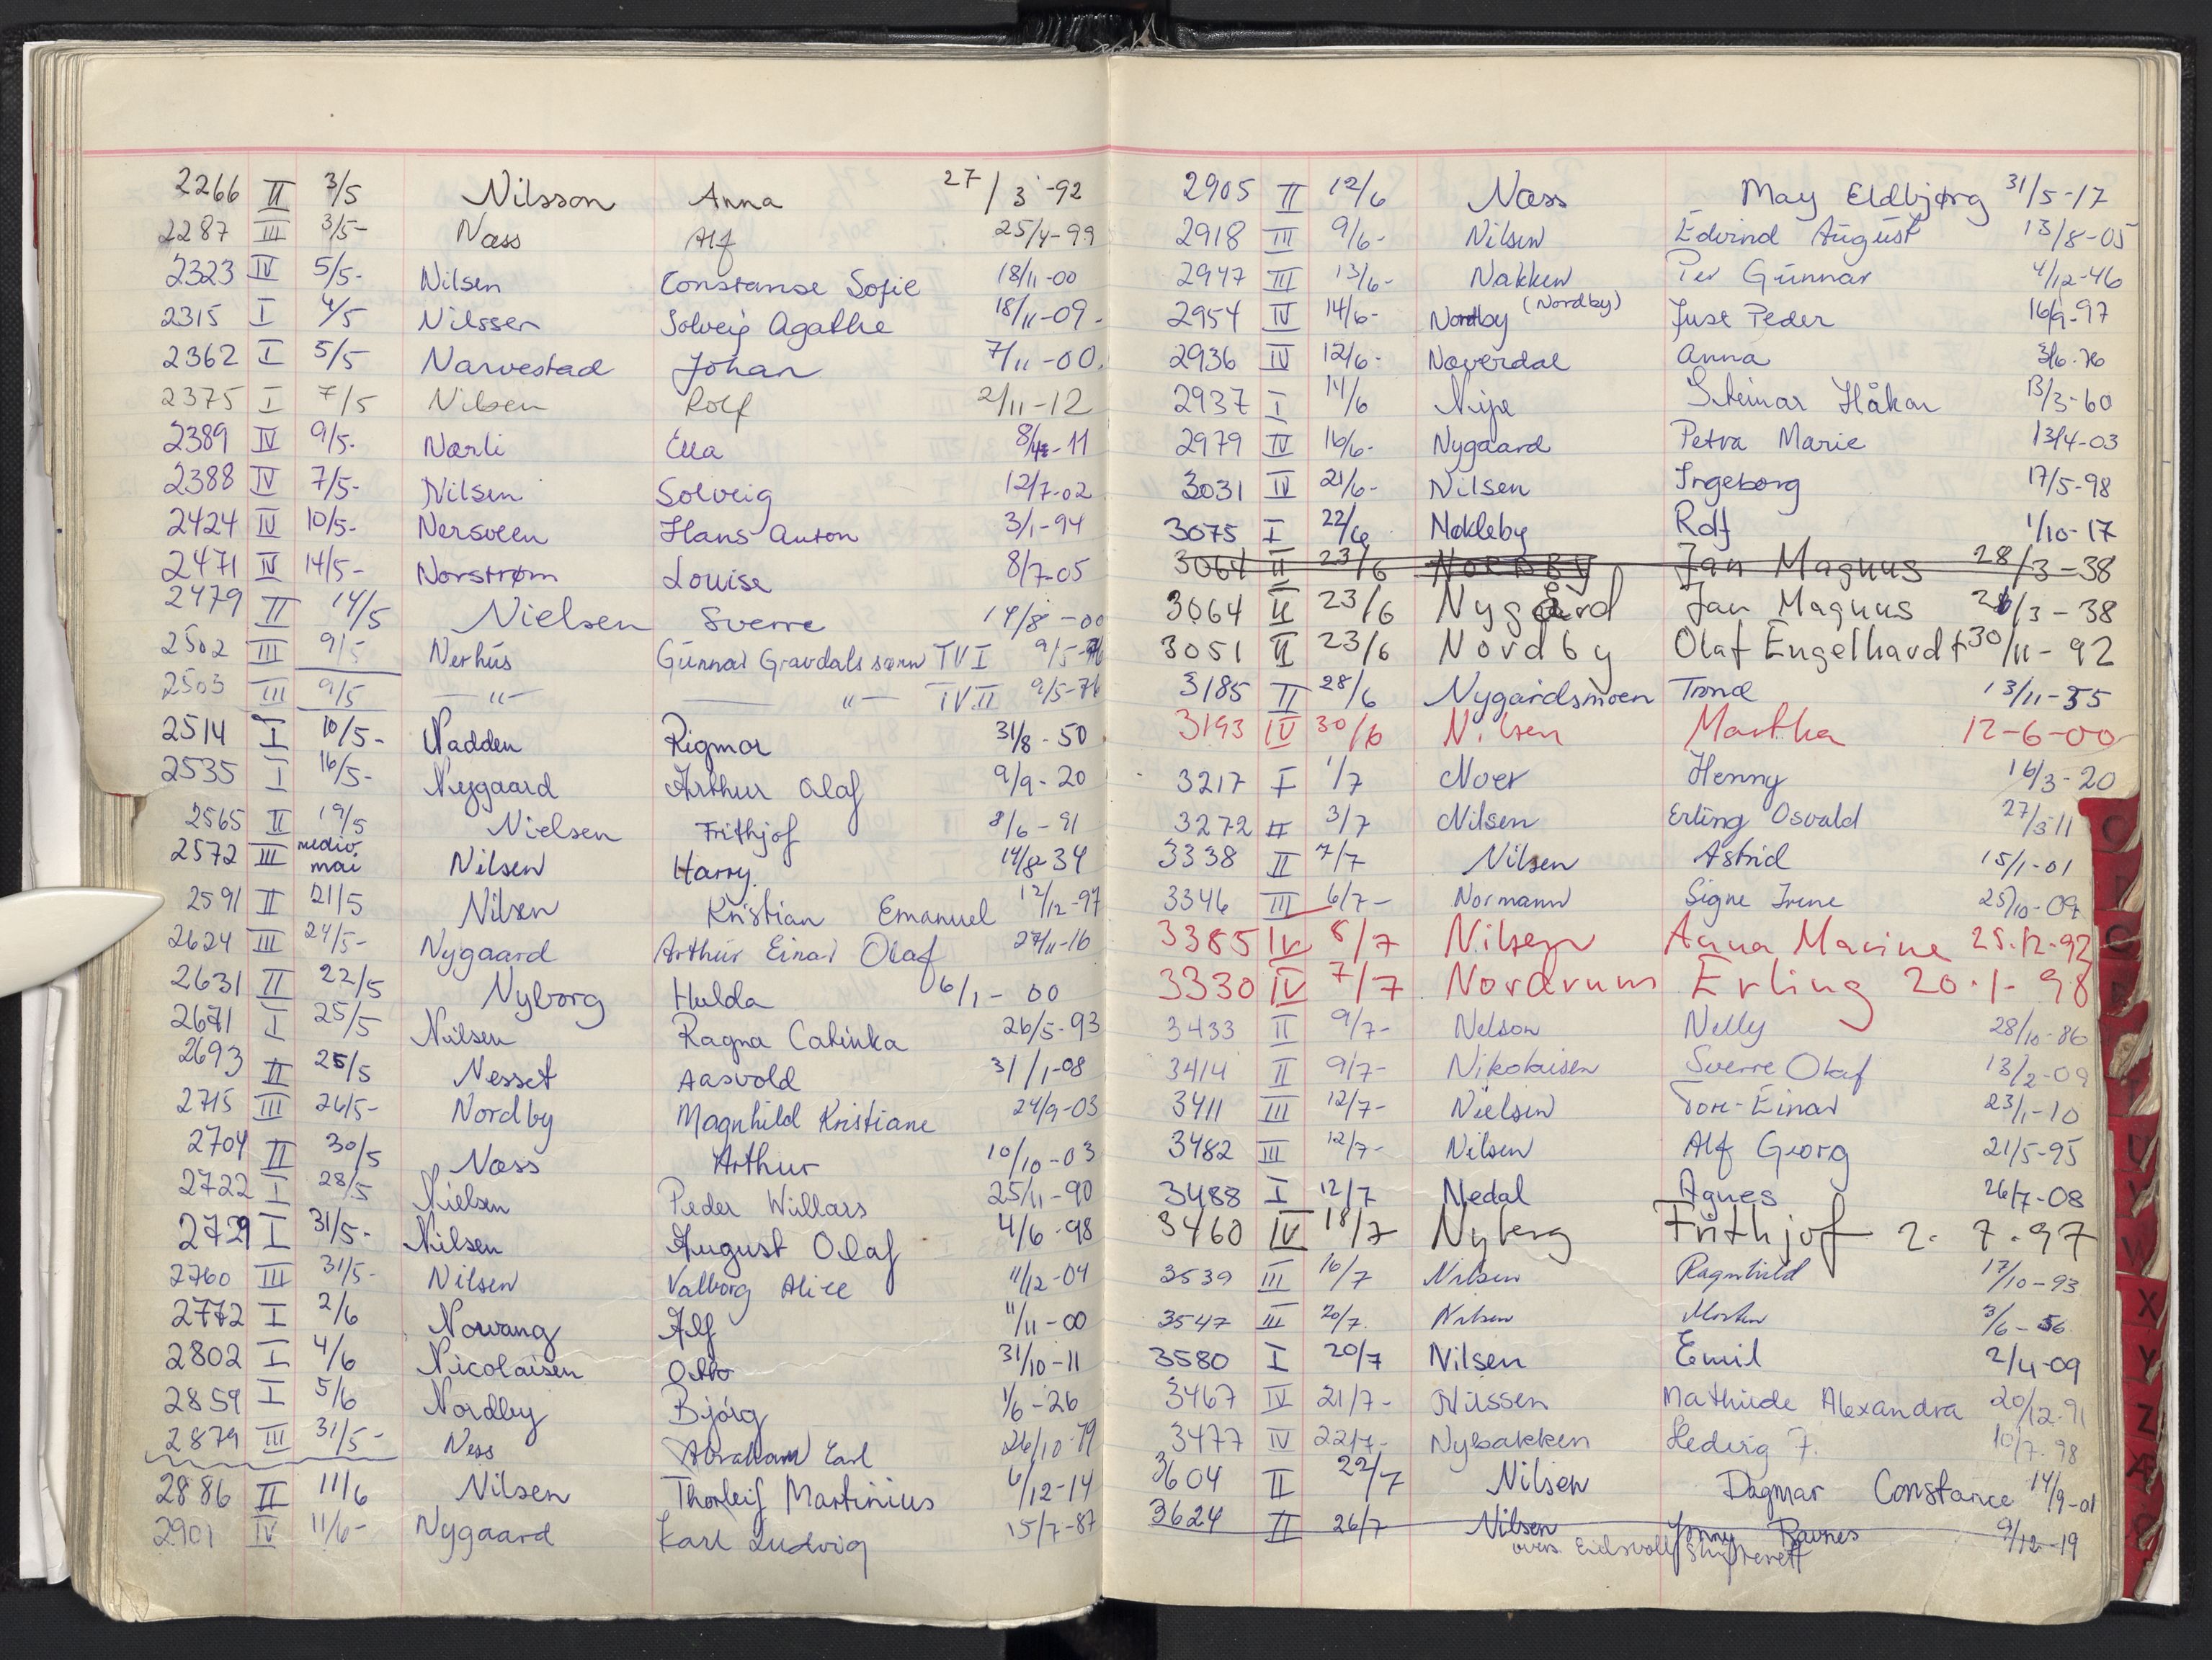 2266 II 3/5 Nilsson Anna 27/3-92
2287 III 3/5- Næss Alf 25/4-99
2323 IV 5/5- Nilsen Constanse Sofie 18/11-00
2315 I 4/5 Nilssen Solveig Agathe 18/11-09-
2362 I 5/5 Narvestad Johan 7/11-00.
2375 I 7/5 Nilsen Rolf 2/11-12
2389 IV 9/5- Nærli Ella
2388 IV 7/5- Nilsen Solveig 12/7-02
2424 IV 10/5- Nersveen Hans Anton 3/1-94
2471 IV 14/5- Norstrøm Louise 8/7-05
2479 II 14/5 Nielsen Sverre 14/8-00
2502 III 9/5 Nerhus Gunnar Gravdals sønn TV I 9/5-76
2503 III 9/5 —"— —"— TV II 9/5-76
2514 I 10/5- Nadden Rigmor 31/8-50
2535 I 16/5- Nygaard Arthur Olaf 9/9-20
2565 II 19/5 Nielsen Frithjof 8/6-91
2572 III medio mai Nilsen Harry. 14/8-34
2591 II 21/5 Nilsen Kristian Emanuel 12/12-97
2624 III 24/5- Nygaard Arthur Einar Olaf 27/11-16
2631 II 22/5 Nyborg Hulda 6/1-00
2671 I 25/5 Nilsen Ragna Cathinka 26/5-93
2693 II 25/5 Nesset Aasvold 31/1-08
2715 III 26/5- Nordby Magnhild Kristiane 24/9-03
2704 II 30/5 Næss Arthur 10/10-03
2722 I 28/5 Nielsen Peder Willars 25/11-90
2729 I 31/5- Nilsen August Olaf 4/6-98
2760 III 31/5- Nilsen Valborg Alice 11/12-04
2772 I 2/6 Nowang Alf 11/11-00
2802 I 4/6 Nicolaisen Otto 31/10-11
2859 I 5/6 Nordby Bjørg 1/6-26
2879 III 31/5- Ness Abraham Earl 26/10-79
2886 II 11/6 Nilsen Thorleif Martinius 6/12-14
2901 IV 11/6- Nygaard Karl Ludvig 15/7-87
2905 II 12/6 Næss May Eldbjørg 31/5-17
2918 III 9/6- Nilsen Edvind August 13/8-05
2947 III 13/6- Nakken Per Gunnar 4/12-46
2954 IV 14/6- Nordby (Nordby) Just Peder 16/9-97
2936 IV 12/6- Nøverdal Anna 3/6-76
2937 I 14/6 Nipe Steinar Håkon 13/3-60
2979 IV 16/6- Nygaard Petra Marie 13/4-03
3031 IV 21/6- Nilsen Ingeborg 17/5-98
3075 I 22/6 Nøkleby Rolf 1/10-17
3064 II 23/6 Nordby Jan Magnus 28/3-38
3064 II 23/6 Nygård Jan Magnus 28/3-38
3051 II 23/6 Nordby Olaf Engelhardt 30/11-92
3185 II 28/6 Nygårdsmoen Trond 13/11-35
3193 IV 30/6 Nilsen Martha 12-6-00
3217 I 1/7 Noer Henny 16/3-20
3272 II 3/7 Nilsen Erling Osvald 27/3-11
3338 II 7/7 Nilsen Astrid 15/1-01
3346 III 6/7- Normann Signe Irene 25/10-09
3385 IV 8/7 Nilsen Anna Marine 25.12-92
3330 IV 7/7 Nordrum Erling 20.1-98
3433 II 9/7- Nelson Nelly 28/10-86
3414 II 9/7- Nikolaisen Sverre Olaf 13/2-09
3411 III 12/7- Nielsen Tore-Einar 23/1-10
3482 III 12/7- Nilsen Alf Georg 21/5-95
3488 I 12/7 Nedal Agnes 26/7-08
3460 IV 18/7 Nyberg Frithjof 2.7.97
3539 III 16/7 Nilsen Ragnhild 17/10-93
3547 III 20/7 Nilsen Morten 3/6-56
3580 I 20/7 Nilsen Emil 2/4-09
3467 IV 21/7- Nilssen Mathilde Alexandra 20/12-91
3477 IV 22/7- Nybakken Hedvig F. 10/7-98
3604 II 22/7 Nilsen Dagmar Constance 14/9-01
3624 II 26/7 Nilsen Jonny Raunes 9/12-19
overs. Eidsvoll Skifterett